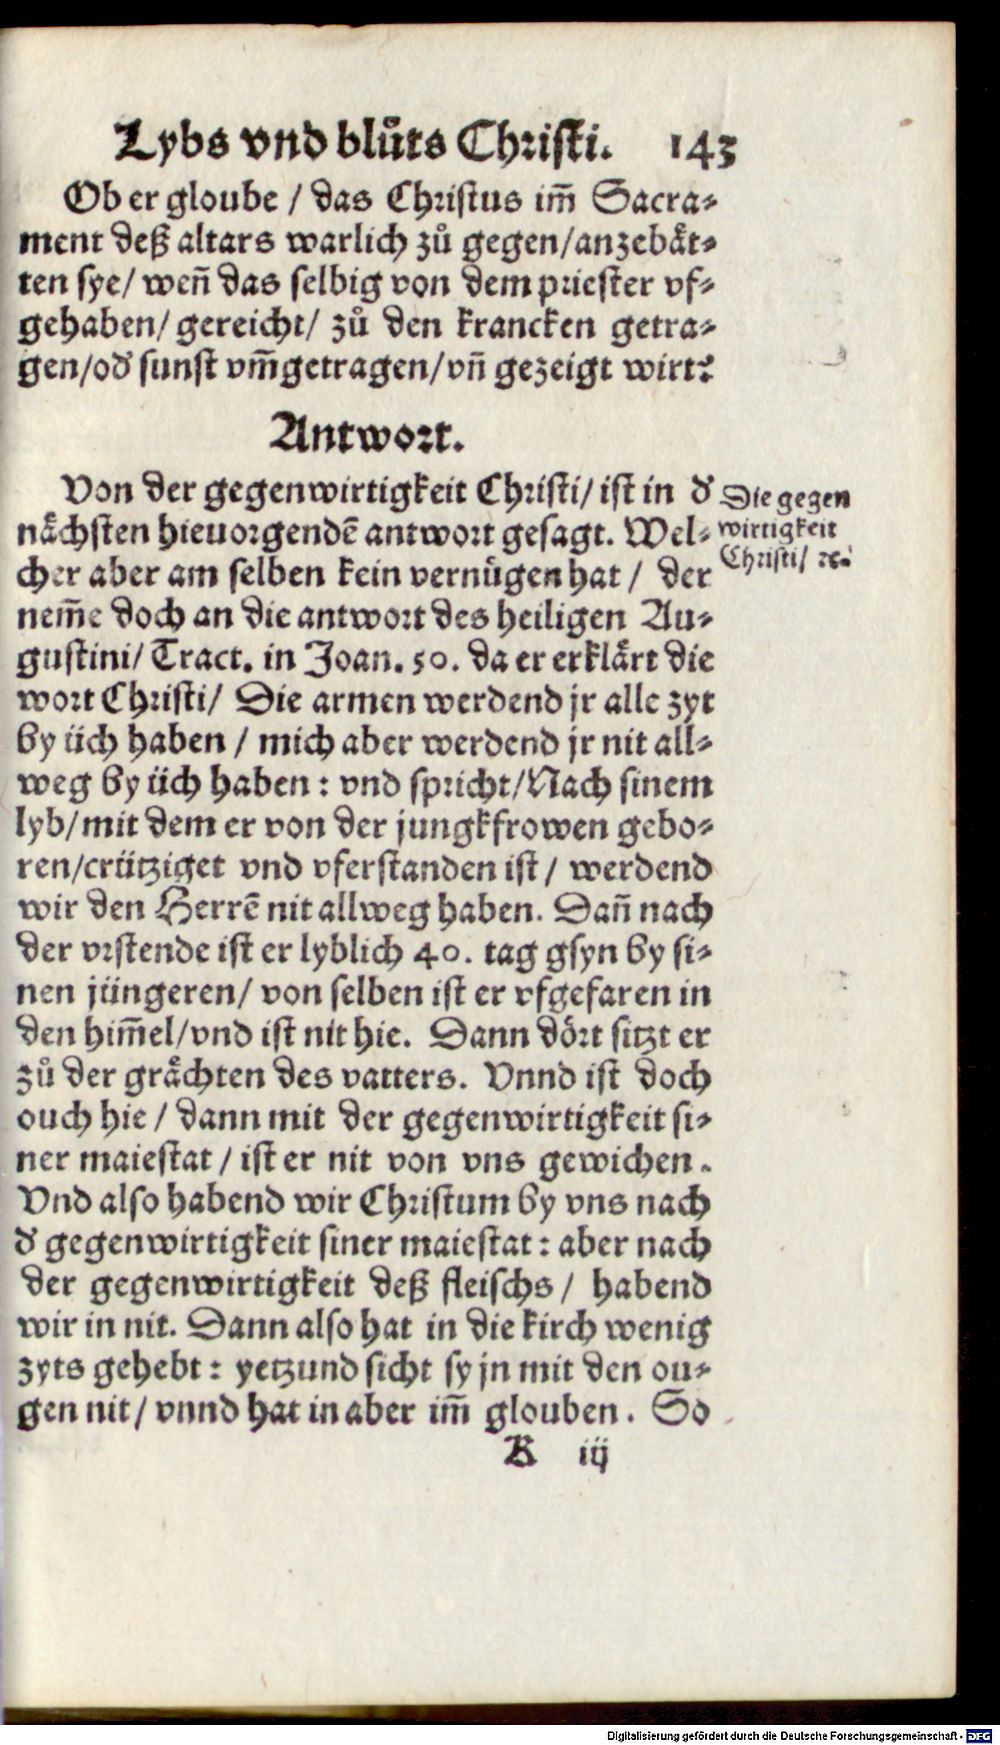 Lybs vnd blůts Christi. 143
Ob er gloube / das Christus im̃ Sacra-
ment deß altars warlich zů gegen/anzebaͤt-
ten sye/ weñ das selbig von dem priester vf-
gehaben/ gereicht/ zů den krancken getra-
gen/od' sunst vm̃getragen/vñ gezeigt wirt?
Antwort.
Von der gegenwirtigkeit Christi/ ist in d'
naͤchsten hieuorgendē antwort gesagt. Wel-
cher aber am selben kein vernuͤgen hat / der
nem̃e doch an die antwort des heiligen Au-
gustini/ Tract. in Joan. 50. da er erklaͤrt die
wort Christi/ Die armen werdend jr alle zyt
by üch haben / mich aber werdend jr nit all-
weg by üch haben : vnd spricht/Nach sinem
lyb/mit dem er von der jungkfrowen gebo-
ren/crütziget vnd vferstanden ist / werdend
wir den Herrē nit allweg haben. Dañ nach
der vrstende ist er lyblich 40. tag gsyn by si-
nen jüngeren/ von selben ist er vfgefaren in
den him̃el/vnd ist nit hie. Dann doͤrt sitzt er
zů der graͤchten des vatters. Vnnd ist doch
ouch hie / dann mit der gegenwirtigkeit si-
ner maiestat / ist er nit von vns gewichen.
Vnd also habend wir Christum by vns nach
d' gegenwirtigkeit siner maiestat : aber nach
der gegenwirtigkeit deß fleischs / habend
wir in nit. Dann also hat in die kirch wenig
zyts gehebt : yetzund sicht sy jn mit den ou-
gen nit / vnnd hat in aber im̃ glouben. So
K iij
Die gegen
wirtigkeit
Christi/ ꝛc.
Digitalisierung gefördert durch die Deutsche Forschungsgemeinschaft - DFG